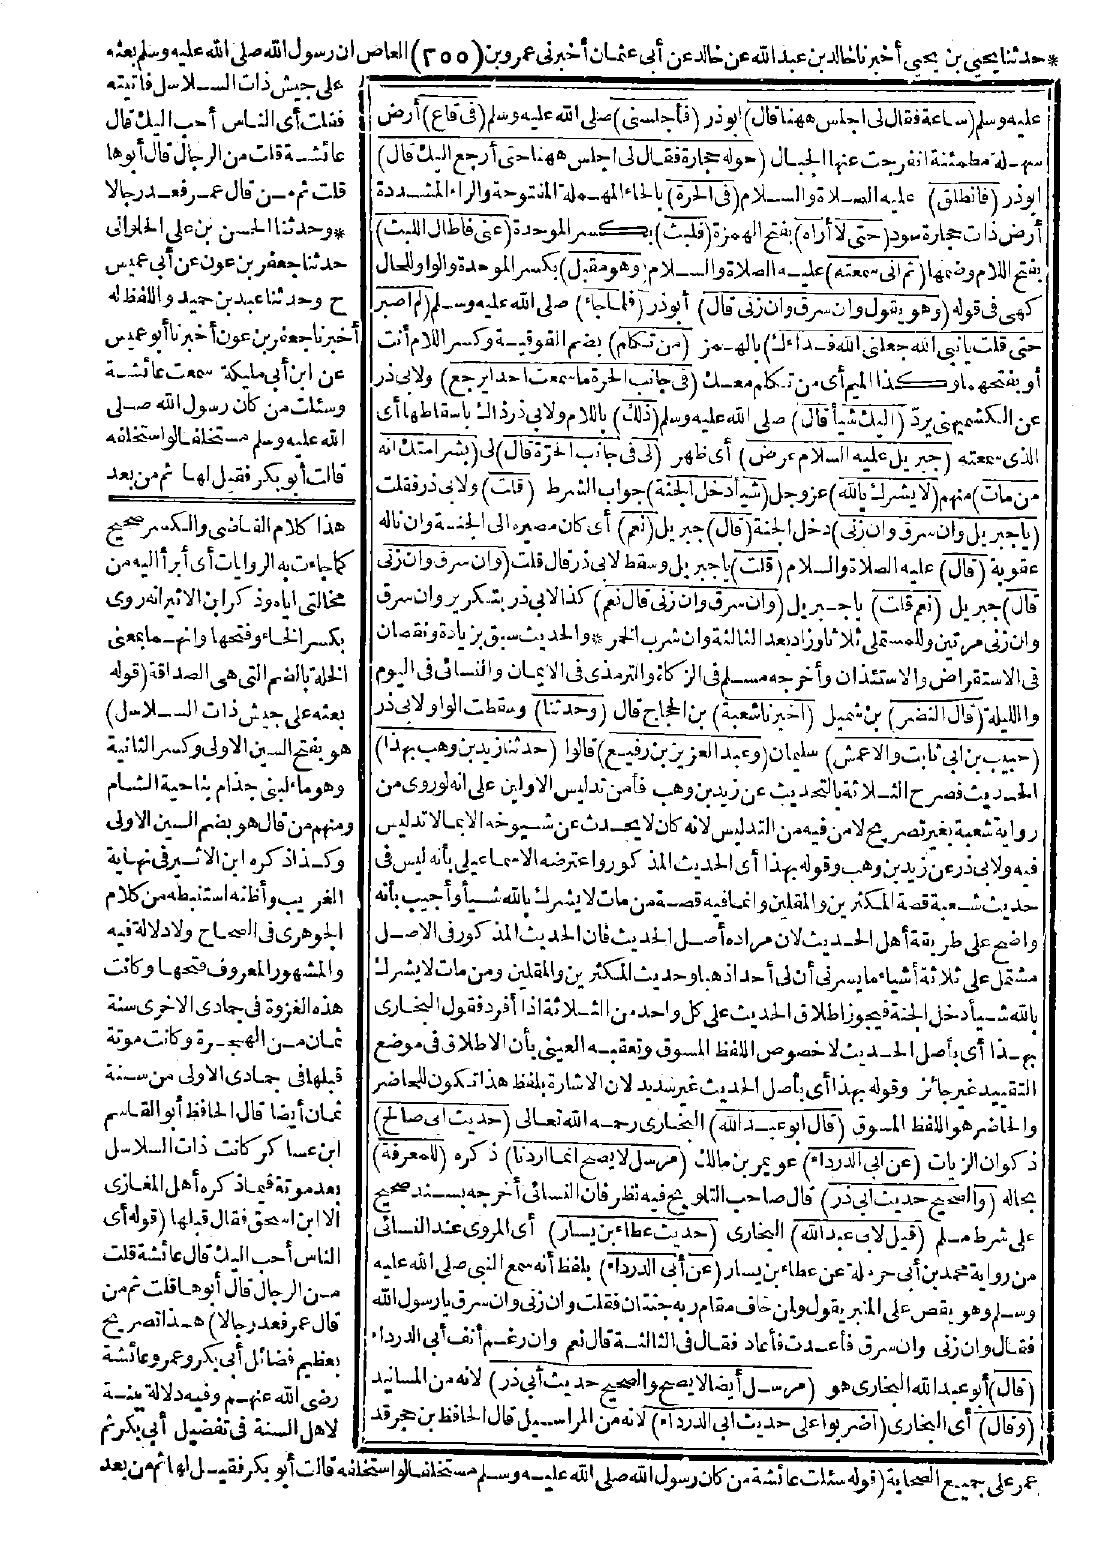 * حدثنا يحيى بن يحيى أخبرنا خالد بن عبد الله عن خالد عن أبى عثمان أخبرنى عمرو بن (٢٥٥) العاص ان رسول الله صلى الله عليه وسلم بعثه
على جيش ذات السلاسل فأتيته
فقلت أى الناس أحب اليك قال
عائشة قلت من الرجال قال أبوها
قلت ثم من قال عمر فعد رجالا
* وحدثنا الحسن بن على الحلوانى
حدثنا جعفر بن عون عن أبى عميس
ح وحدثنا عبد بن حميد واللفظ له
أخبرنا جعفر بن عون أخبرنا أبو عميس
عن ابن أبى مليكة سمعت عائشة
وسئلت من كان رسول الله صلى
الله عليه وسلم مستخلفا لو استخلفه
قالت أبو بكر فقيل لها ثم من بعد
هذا كلام القاضى والكسر صحيح
كما جاءت به الروايات أى أبرأ اليه من
مخالتى اياه وذكر ابن الاثير انه روى
بكسر الخاء وفتحها وانهما بمعنى
الخلة بالضم التى هى الصداقة (قوله
بعثه على جيش ذات السلاسل)
هو بفتح السين الاولى وكسر الثانية
وهو ماء لبنى جذام بناحية الشام
ومنهم من قال هو بضم السين الاولى
وكذا ذكره ابن الاثير فى نهاية
الغريب وأظنه استنبطه من كلام
الجوهرى فى الصحاح ولا دلالة فيه
والمشهور المعروف فتحها وكانت
هذه الغزوة فى جمادى الاخرى سنة
ثمان من الهجرة وكانت موتة
قبلها فى جمادى الاولى من سنة
ثمان أيضا قال الحافظ أبو القاسم
ابن عساكر كانت ذات السلاسل
بعد موتة فيما ذكره أهل المغازى
الا ابن اسحق فقال قبلها (قوله أى
الناس أحب اليك قال عائشة قلت
من الرجال قال أبوها قلت ثم من
قال عمر فعد رجالا) هذا تصريح
بعظيم فضائل أبى بكر وعمر وعائشة
رضى الله عنهم وفيه دلالة بينة
لاهل السنة فى تفضيل أبى بكر ثم
عمر على جميع الصحابة (قوله سئلت عائشة من كان رسول الله صلى الله عليه وسلم مستخلفا لو استخلفه قالت أبو بكر فقيل لها ثم من بعد
عليه وسلم (ساعة فقال لى اجلس ههنا قال) ابو ذر (فأجلسنى) صلى الله عليه وسلم (فى قاع) أرض
سهلة مطمئنة انفرجت عنها الجبال (حوله حجارة فقال لى اجلس ههنا حتى أرجع اليك قال)
ابو ذر (فانطلق) عليه الصلاة والسلام (فى الحرة) بالحاء المهملة المفتوحة والراء المشددة
أرض ذات حجارة سود (حتى لا أراه) بفتح الهمزة (فلبث) بكسر الموحدة (عنى فاطال اللبث)
بفتح اللام وضمها (ثم انى سمعته) عليه الصلاة والسلام (وهو مقبل) بكسر الموحدة والواو للحال
كهى فى قوله (وهو يقول وان سرق وان زنى قال) أبو ذر (فلما جاء) صلى الله عليه وسلم (لم اصبر
حتى قلت يا نبى الله جعلنى الله فداءك) بالهمز (من تكلم) بضم الفوقية وكسر اللام أنت
أو بفتحهما وكذا الميم أى من تكلم معك (فى جانب الحرة ما سمعت احدا يرجع) ولابى ذر
عن الكشميهنى يردّ (اليك شيأ قال) صلى الله عليه وسلم (ذلك) باللام ولابى ذر ذاك باسقاطها أى
الذى سمعته (جبريل عليه السلام عرض) أى ظهر (لى فى جانب الحرّة قال) لى (بشر امتك انه
من مات) منهم (لا يشرك بالله) عز وجل (شيأ دخل الجنة) جواب الشرط (قلت) ولابى ذر فقلت
(يا جبريل وان سرق وان زنى) دخل الجنة (قال) جبريل (نعم) أى كان مصيره الى الجنة وان ناله
عقوبة (قال) عليه الصلاة والسلام (قلت) يا جبريل وسقط لابى ذر قال قلت (وان سرق وان زنى
قال) جبريل (نعم قلت) يا جبريل (وان سرق وان زنى قال نعم) كذا لابى ذر بتكرير وان سرق
وان زنى مرتين وللمستملى ثلاثا وزاد بعد الثالثة وان شرب الخمر * والحديث سبق بزيادة ونقصان
فى الاستقراض والاستئذان وأخرجه مسلم فى الزكاة والترمذى فى الايمان والنسائى فى اليوم
والليلة (قال النضر) بن شميل (اخبرنا شعبة) بن الحجاج قال (وحدثنا) وسقطت الواو لابى ذر
(حبيب بن ابى ثابت والاعمش) سليمان (وعبد العزيز بن رفيع) قالوا (حدثنا زيد بن وهب بهذا)
الحديث فصرح الثلاثة بالتحديث عن زيد بن وهب فأمن تدليس الاولين على انه لو روى من
رواية شعبة بغير تصريح لامن فيه من التدليس لانه كان لا يحدث عن شيوخه الا بما لا تدليس
فيه ولابى ذر عن زيد بن وهب وقوله بهذا أى الحديث المذكور واعترضه الاسماعيلى بأنه ليس فى
حديث شعبة قصة المكثرين والمقلين وانما فيه قصة من مات لا يشرك بالله شيأ وأجيب بأنه
واضح على طريقة أهل الحديث لان مراده أصل الحديث فان الحديث المذكور فى الاصل
مشتمل على ثلاثة أشياء ما يسرنى أن لى أحدا ذهبا وحديث المكثرين والمقلين ومن مات لا يشرك
بالله شيأ دخل الجنة فيجوز اطلاق الحديث على كل واحد من الثلاثة اذا أفرد فقول البخارى
بهذا أى بأصل الحديث لا خصوص اللفظ المسوق وتعقبه العينى بأن الاطلاق فى موضع
التقييد غير جائز وقوله بهذا أى بأصل الحديث غير سديد لان الاشارة بلفظ هذا تكون للحاضر
والحاضر هو اللفظ المسوق (قال ابو عبد الله) البخارى رحمه الله تعالى (حديث ابى صالح)
ذكوان الزيات (عن ابى الدرداء) عويمر بن مالك (مرسل لا يصح انما اردنا) ذكره (للمعرفة)
بحاله (والصحيح حديث ابى ذر) قال صاحب التلويح فيه نظر فان النسائى أخرجه بسند صحيح
على شرط مسلم (قيل لابى عبد الله) البخارى (حديث عطاء بن يسار) أى المروى عند النسائى
من رواية محمد بن أبى حرملة عن عطاء بن يسار (عن أبى الدرداء) بلفظ أنه سمع النبى صلى الله عليه
وسلم وهو يقص على المنبر يقول ولمن خاف مقام ربه جنتان فقلت وان زنى وان سرق يا رسول الله
فقال وان زنى وان سرق فأعدت فأعاد فقال فى الثالثة قال نعم وان رغم أنف أبى الدرداء
(قال) أبو عبد الله البخارى هو (مرسل أيضا لا يصح والصحيح حديث أبى ذر) لانه من المسانيد
(وقال) أى البخارى (اضربوا على حديث ابى الدرداء) لانه من المراسيل قال الحافظ بن حجر قد